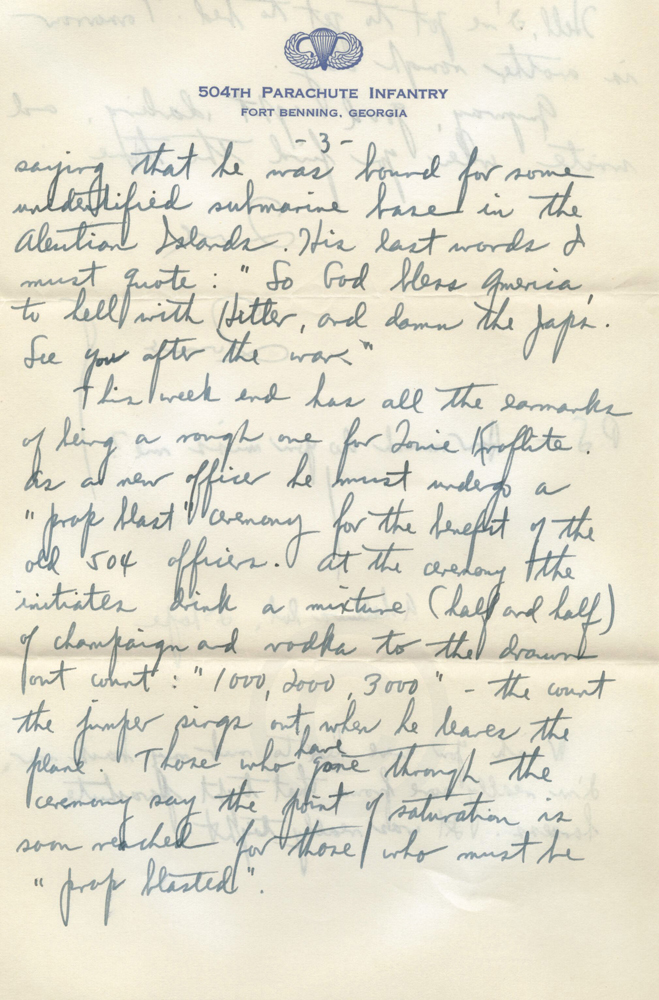 504TH PARACHUTE INFANTRY
FORT BENNING, GEORGIA
- 3 -
saying that he was bound for some
unidentified submarine base in the
Aleutian Islands. His last words I
must quote: "So God bless America,
to hell with Hitler, and damn the Japs.
See you after the war."
This week end has all the earmarks
of being a rough one for Louie
As a new officer he must undergo a
"prop blast" ceremony for the benefit of the
old 504 officers. At the ceremony the
initiates drink a mixture (half and half)
of champaign and vodka to the drawn
out count: "1000, 2000, 3000" - the count
the jumper sings out when he leaves the
plane. Those who have gone through the
ceremony say the point of saturation is
soon reached for those who must be
"prop blasted".